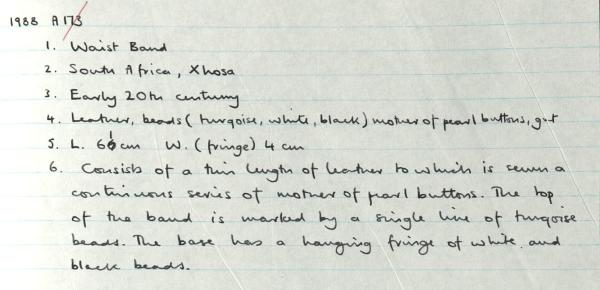 1988 A 173
1. Waist Band
2. South Africa, Xhosa
3. Early 20th century
4. Leather, beads (turqoise, white, black) mother of pearl buttons, gut
5. L. 66 cm W. (fringe) 4 cm
6. Consists of a thin length of leather to which is sewn a
continuous series of mother of pearl buttons. The top
of the band is marked by a single line of turqoise
beads. The base has a hanging fringe of white and
black beads.